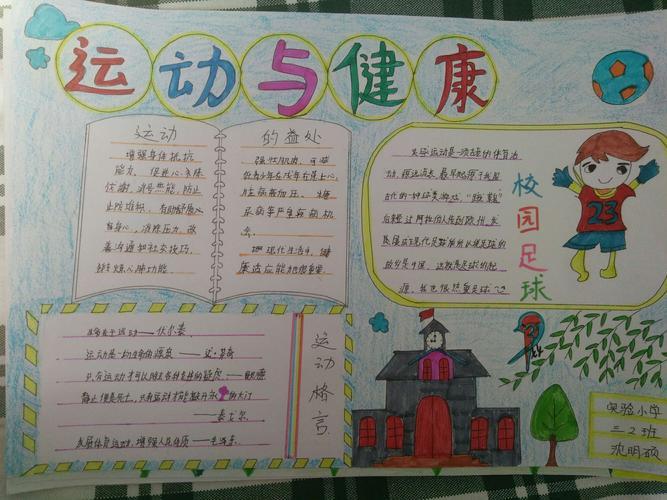 运动与健康
运动
的益处
增强身体抵抗
能力、促进心、
消耗热能,防止
脂肪堆积,有助舒展心
身心,消除压力,改
善沟通和社交技巧,
强壮肌肉,可减
低青少年在成年后患上心
脏病、高血压、糖
尿病等严重疾病机
会。
现代化生活中,健
康适应能力很重要。
足球运动是一项古老的体育活
动,源远流长,最早起源于我国
古代的一种球类游戏“蹴鞠”
后经过阿拉伯人传到欧洲,
发展成现代足球所以说足球的
故乡是中国
源,我也很热爱足球
校园足球
23
生命在于运动——伏尔泰
运动是一切生命的源泉——达·芬奇
静止便是死亡,只有运动才能敲开永的大门
——泰戈尔
发展体育运动,增强人民体质——毛泽东
运动格言
实验小学
三2班
沈明硕